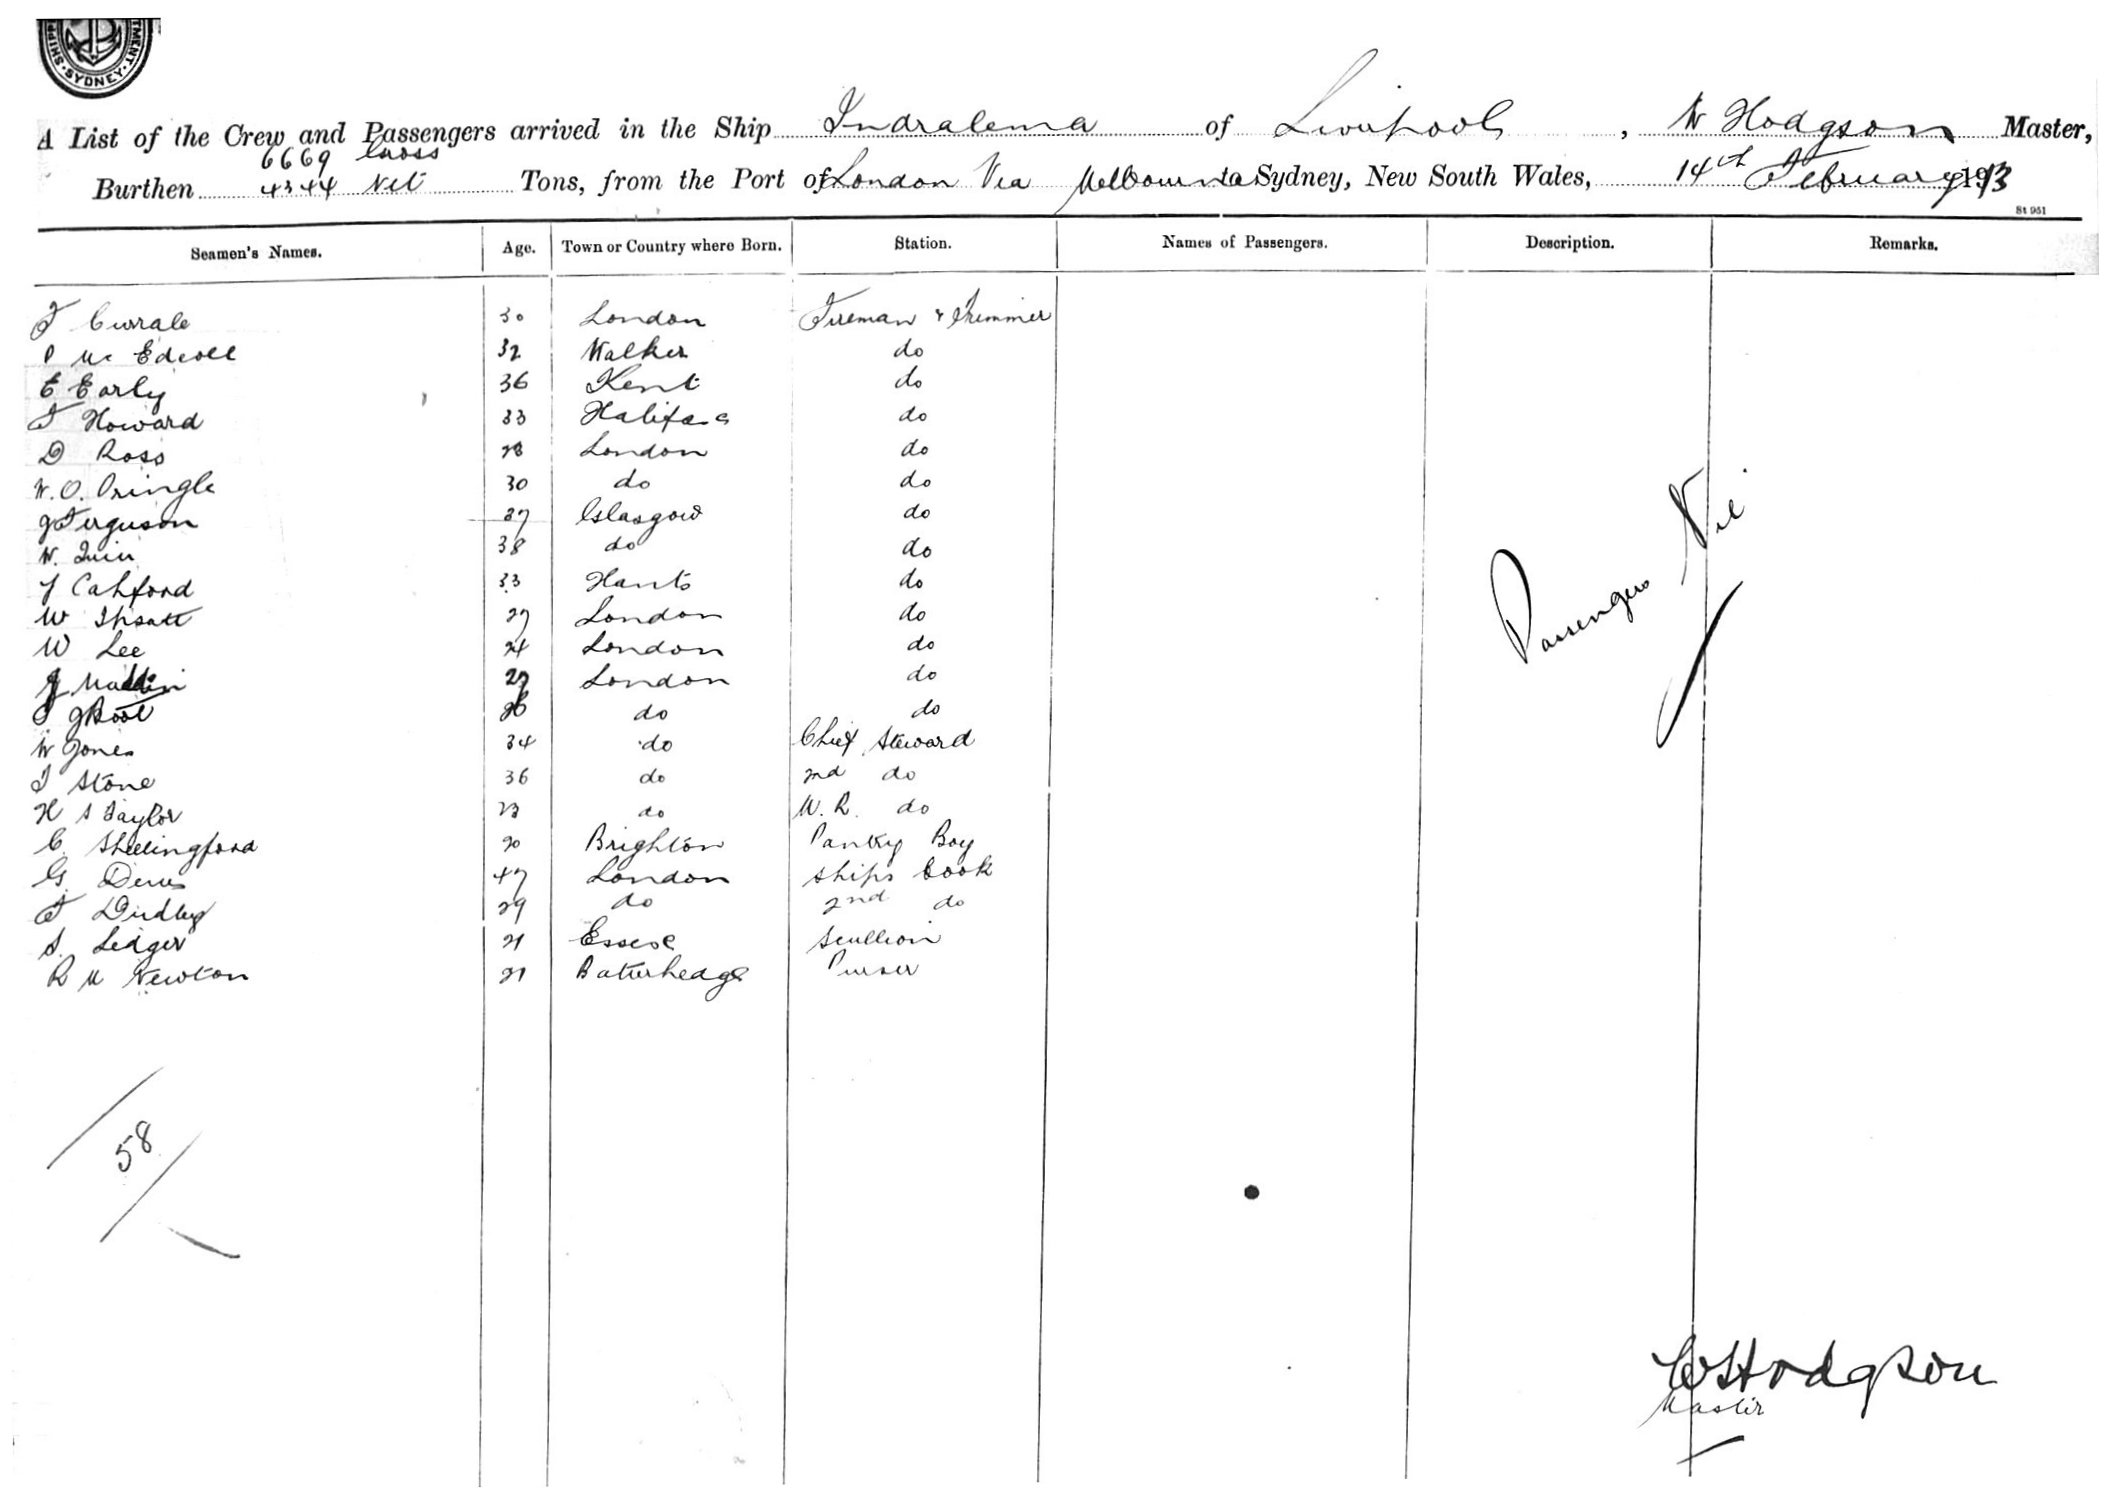 SHIPP TMENT. SYDNEY.
A List of the Crew and Passengers arrived in the Ship Indralema of Liverpool, W Hodgson Master,
6669 Gross
Burthen 4344 Net Tons, from the Port of London Via Melbourne to Sydney, New South Wales, 14th February 1913
St 951
Seamen's Names. Age. Town or Country where Born. Station. Names of Passengers. Description. Remarks.
T Currale 30 London Fireman & Trimmer
P Mc Edvoll 32 Walker do
E Early 36 Kent do
T Howard 33 Halifax do
D Ross 28 London do
W. O. Pringle 30 do do
J Ferguson 37 Glasgow do
W. Quin 38 do do
Cahford 33 Hants do
W 27 London do
W Lee 24 London do
J Maddin 27 London do
T J Boot 26 do do
W Jones 34 do Chief Steward
T Stone 36 do 2nd do
H S Taylor 23 do W. R. do
C. Shellingford 20 Brighton Pantry Boy
G. 47 London Ships Cook
T Dudley 29 do 2nd do
S. Ledger 21 Essex Scullion
R M Newton 21 Purser
Passengers Nil
58
W Hodgson
Master